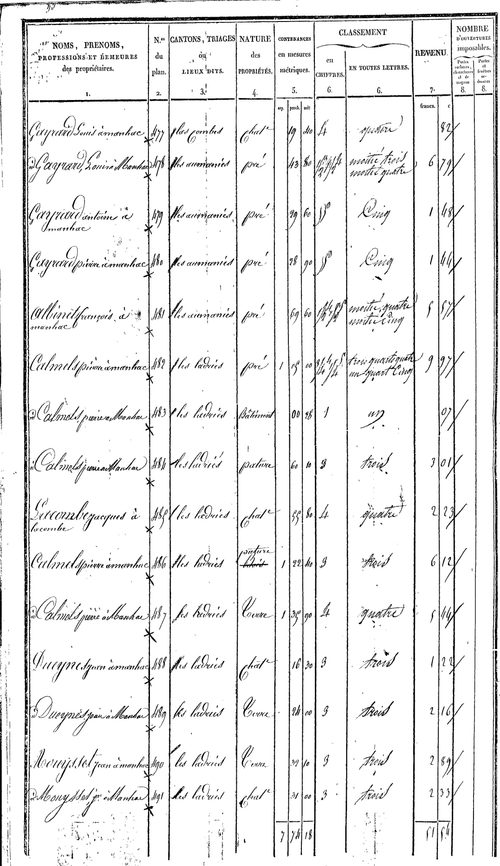 NOMS, PRENOMS, PROFESSIONS ET DEMEURES des propriétaires. | N.os du plan. | CANTONS, TRIAGES ou LIEUX DITS. | NATURE des PROPRIÉTÉS. | CONTENANCES en mesures métriques. | CLASSEMENT en CHIFFRES. | EN TOUTES LETTRES. | REVENU. | NOMBRE D'OUVERTURES imposables.
1. 2. 3. 4. 5. 6. 6. 7. 8. 8.
francs. c.
Gayrard Louis à manhac 477 les combes chat. 19 40 4 quatre 82
Gayrard Louis à Manhac 478 les aumaniés pré 43 80 moitié trois moitié quatre 6 79
Gayrard antoine à manhac 479 les aumaniés pré 29 60 5 Cinq 1 48
Gayrard pierre à manhac 480 les aumaniés pré 28 90 5 Cinq 1 44
françois à manhac 481 les aumaniés pré 69 60 moitié quatre moitié Cinq 5 57
Calmels pierre à manhac 482 les ladriés pré 1 05 00 trois quarts quatre un quart Cinq 9 97
Calmels pierre à Manhac 483 les ladriés Bâtiment 00 28 1 un 07
Calmels pierre à Manhac 484 les ladriés pature 60 10 3 trois 3 01
Lacombe jacques à lacombe 485 les ladriés chat. 55 80 4 quatre 2 23
Calmels pierre à manhac 486 les ladriés pature 1 22 40 3 trois 6 12
Calmels pierre à Manhac 487 les ladriés Terre 1 35 90 4 quatre 5 44
jean à manhac 488 les ladriés chat. 16 30 3 trois 1 22
jean à Manhac 489 les ladriés Terre 24 00 3 trois 2 16
jean à manhac 490 les ladriés Terre 32 10 3 trois 2 89
à Manhac 491 les ladriés chat. 31 00 3 trois 2 33
7 74 18 51 54